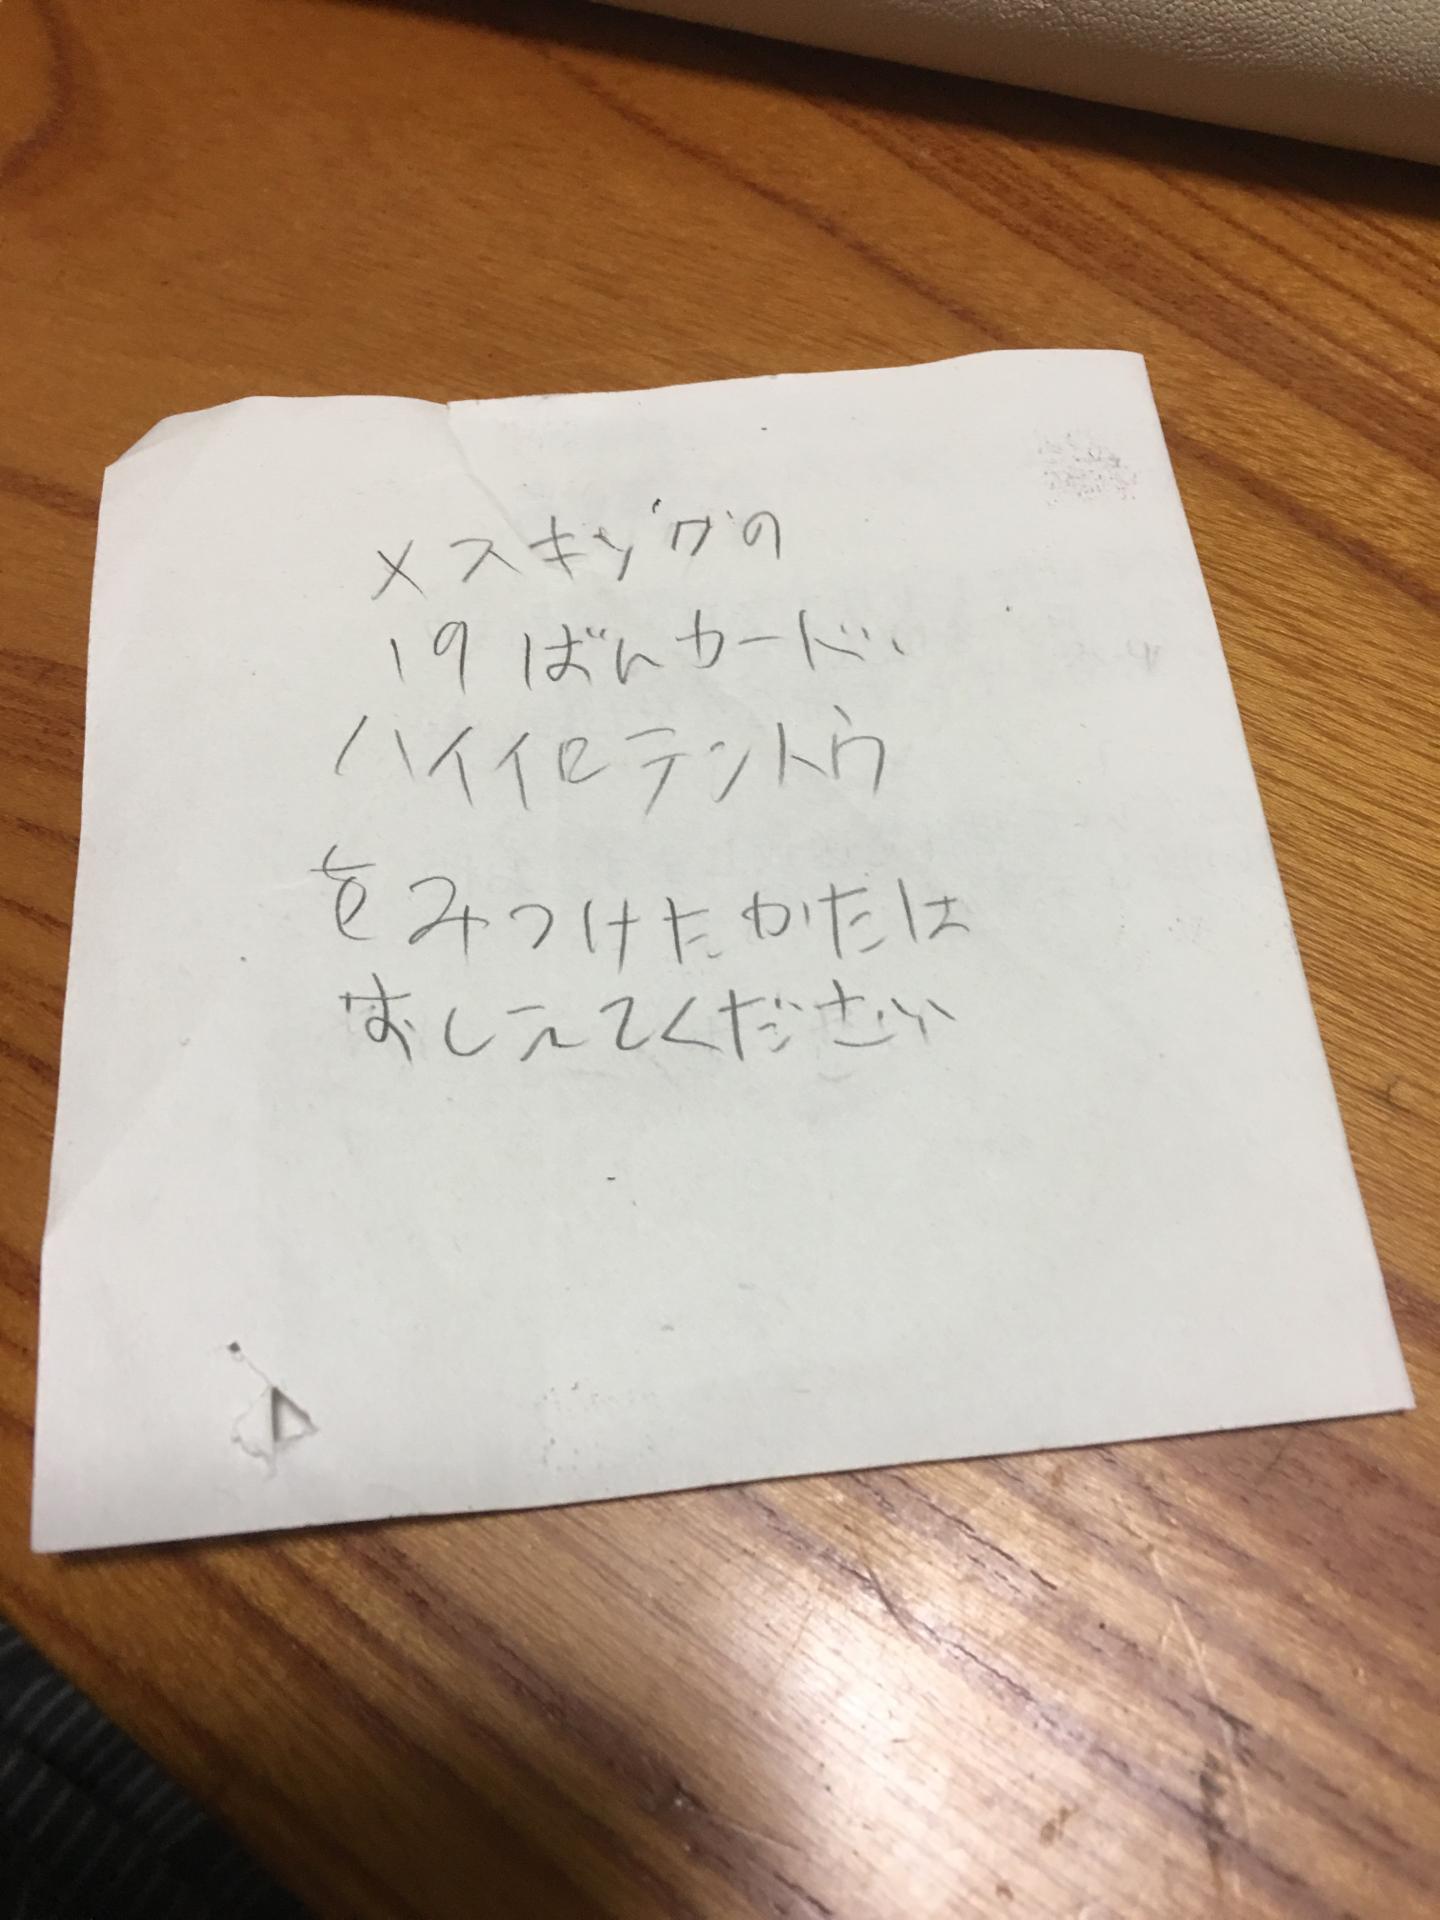 メスキングの
19ばんカード、
ハイイロテントウ
をみつけたかたは
おしえてください